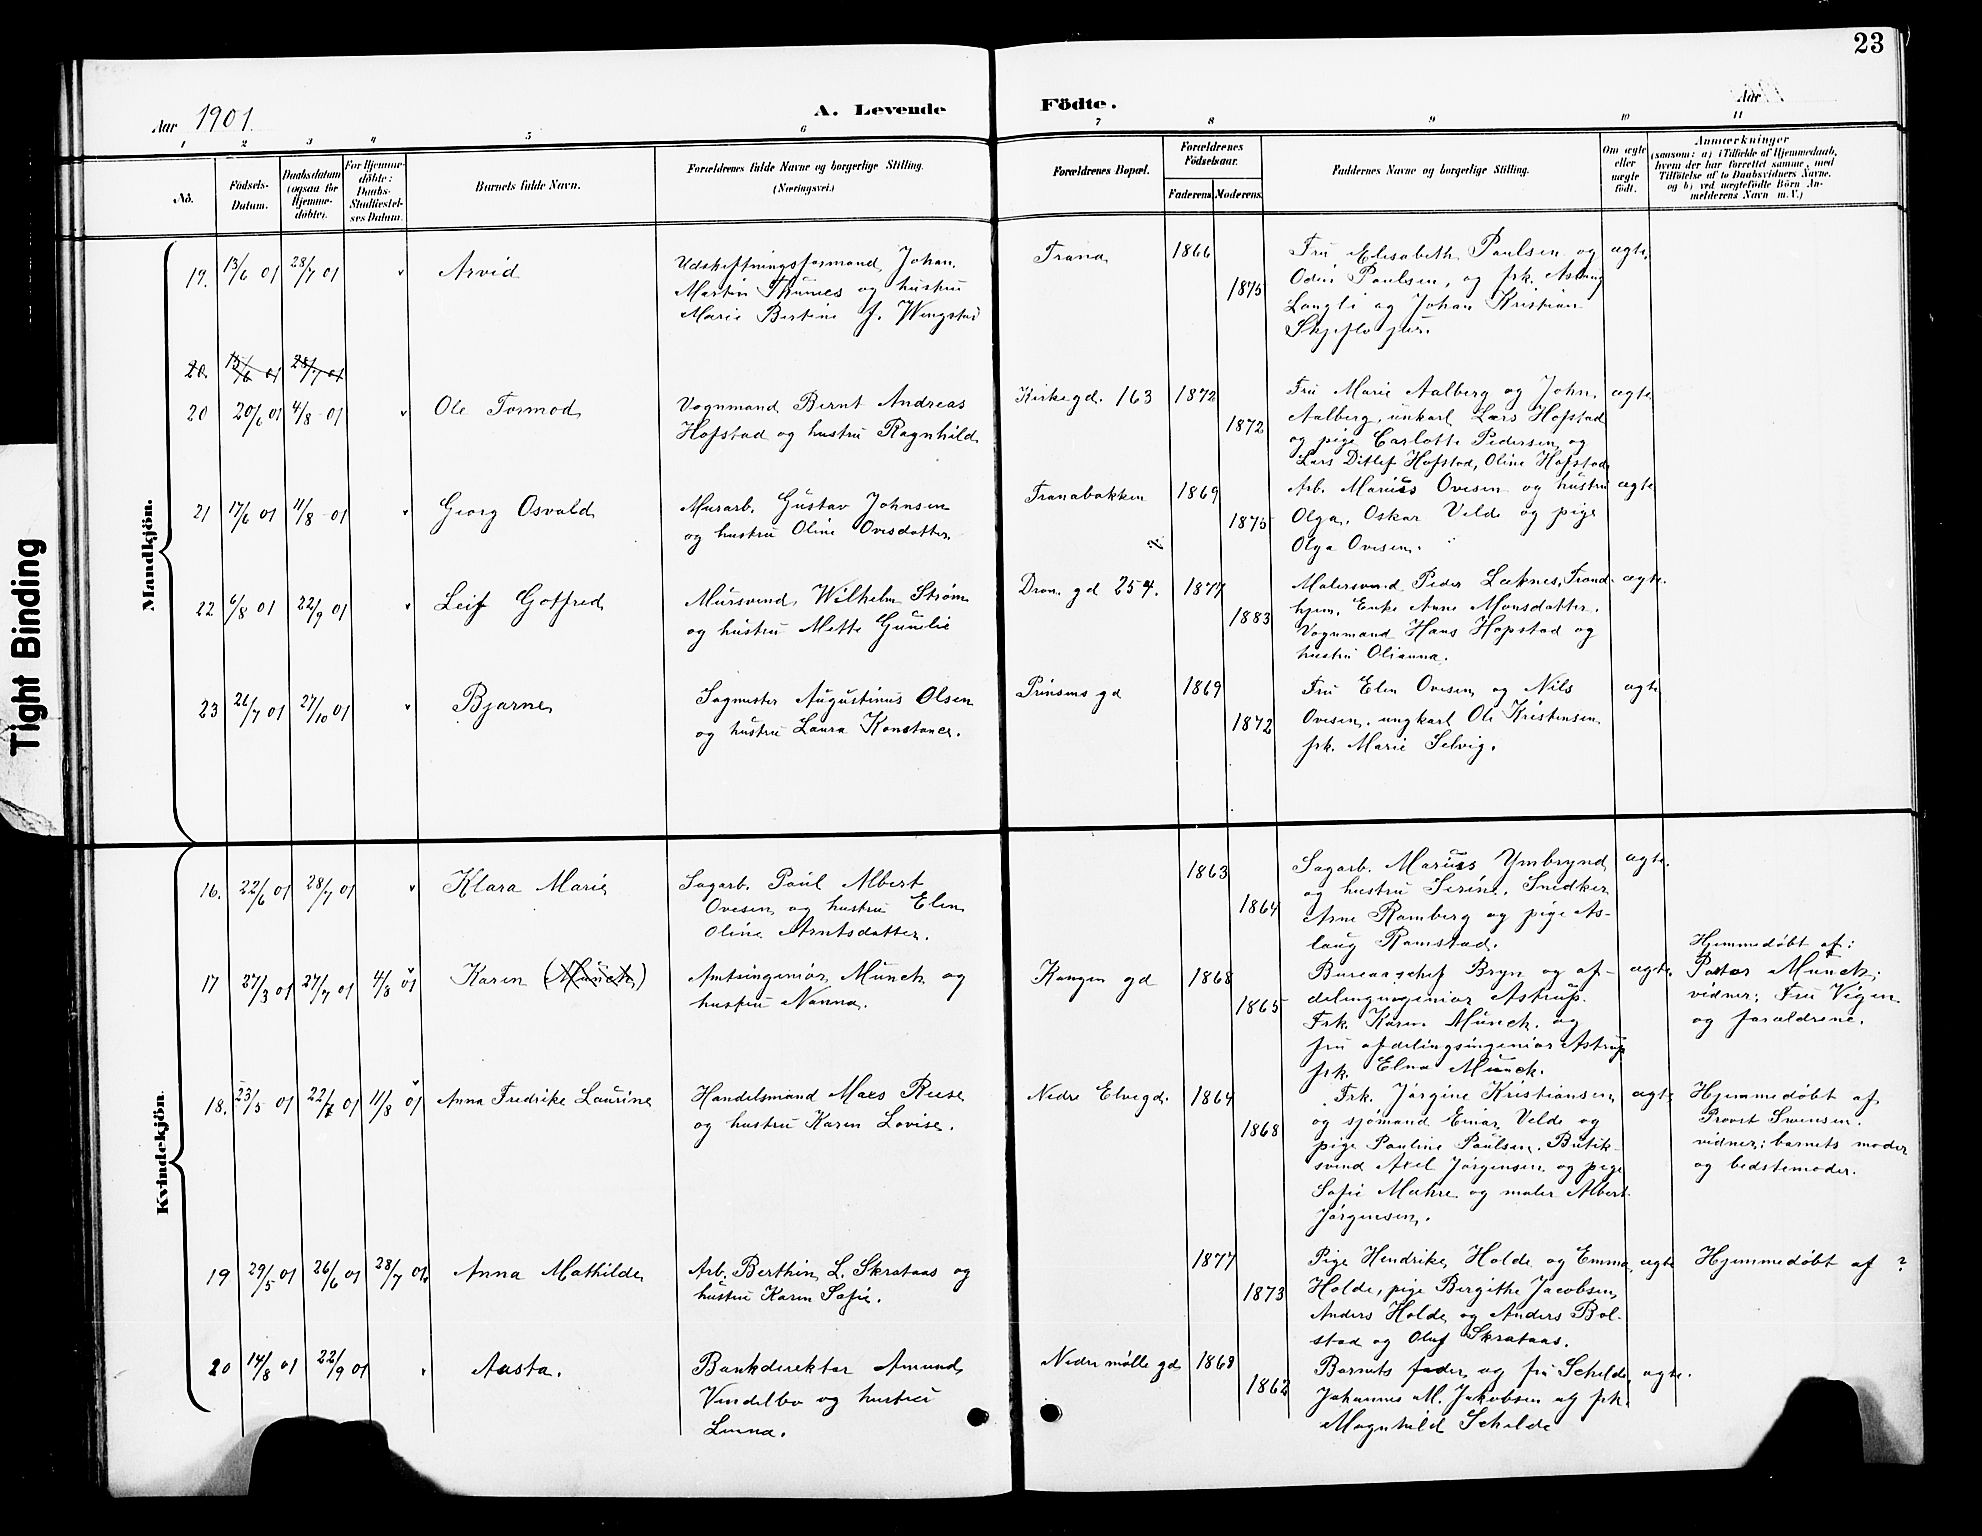 23
Aar 1901.
A. Levende
Födte.
Aar
1 2 3 4 5 6 7 8 9 10 11
No.
Födsels-
Datum.
Daabsdatum
(ogsaa for
Hjemme-
döbte).
For Hjemme-
döbte:
Daabs-
Stadfæstel-
ses Datum.
Barnets fulde Navn.
Forældrenes fulde Navne og borgerlige Stilling.
(Næringsvei.)
Forældrenes Bopæl.
Forældrenes
Födselsaar.
Faderens
Moderens
Faddernes Navne og borgerlige Stilling.
Om ægte
eller
uægte
födt.
Anmærkninger
(saasom: a) i Tilfælde af Hjemmedaab,
hvem der har forrettet samme, med
Tilföielse af to Daabsvidners Navne,
og b) ved uægtefödte Börn An-
melderens Navn m.V.)
Mandkjön.
19. 13/6 01 28/7 01 v Arvid
Udskiftningsformand Johan
Martin Thunes og hustru
Marie Bertine J. Wingstad
Trana 1866
1875
Fru Elisabeth Paulsen og
Odin Paulsen, og frk. Aslaug
Langli og Johan Kristian
Skjeflo jur.
ægte
20. 13/6 01 28/7 01
20 20/6 01 4/8 01 v Ole Tormod
Vognmand Bernt Andreas
Hofstad og hustru Ragnhild
Kirkegd. 163 1872
1872
Fru Marie Aalberg og John
Aalberg, unkarl Lars Hofstad
og pige Carlotte Pedersen og
Lars Ditlef Hofstad, Oline Hofstad
ægte
21 17/6 01 11/8 01 v Georg Osvald
Murarb. Gustav Johnsen
og hustru Oline Ovesdatter
Tranabakken 1869
1875
Arb. Marius Ovesen og hustru
Olga, Oskar Velde og pige
Olga Ovesen.
ægte
22 6/8 01 22/9 01 v Leif Gotfred
Mursvend Wilhelm Strøm
og hustru Mette Gunelie
Dron. gd 254. 1877
1883
Malersvend Peder Leknes, Trond-
hjem, Enke Anne Monsdatter,
Vognmand Hans Hopstad og
hustru Olianna.
ægte
23 26/7 01 27/10 01 v Bjarne
Sagmester Augustinus Olsen
og hustru Laura Konstance.
Prinsens gd 1869
1872
Fru Elen Ovesen og Nils
Ovesen, ungkarl Ole Kristensen
frk. Marie Selvig.
ægte
Kvindekjön.
16. 22/6 01 28/7 01 v Klara Marie
Sagarb. Paul Albert
Ovesen og hustru Elen
Oline Arntsdatter.
1863
1864
Sagarb. Marius Ymbrynd
og hustru Serine. Snedker
Arne Ramberg og pige As-
laug Ramstad.
ægte.
17 27/3 01 27/7 01 4/8 01 Karen (Münch)
Amtsingeniør Münch og
hustru Nanna.
Kongen gd 1868
1865
Bureauschef Bryn og af-
delingsingeniør Astrup.
Frk. Karen Münch. og
fru afdelingsingeniør Astrup
frk. Elna Münch.
ægte.
Hjemmedøbt af:
Pastor Münch;
vidner; Fru Vigen
og forældrene.
18. 23/5 01 22/7 01 11/8 01 Anna Fredrike Laurine
Handelsmand Maes Reese
og hustru Karen Lovise.
Nedre Elvegd. 1864
1868
Frk. Jørgine Kristiansen
og sjømand Einar Velde og
pige Pauline Paulsen. Butik-
svend Axel Jørgensen og pige
Sofie Mæhre og maler Albert
Jørgensen.
ægte
Hjemmedøbt af
Provst Svensen.
vidner: barnets moder
og bedstemoder.
19 29/5 01 26/6 01 28/7 01. Anna Mathilde
Arb. Berthin L. Skrataas og
hustru Karen Sofie.
1877
1873
Pige Hendrike Holde og Emma
Holde, pige Bergithe Jacobsen,
Anders Holde og Anders Bol-
stad og Oluf Skrataas.
ægte
Hjemmedøbt af ?
20 14/8 01 22/9 01 v Aasta.
Bankdirektør Amund
Vindelbo og hustru
Linna.
Nedre mølle gd 1868
1862
Barnets fader og fru Schelde,
Johannes M. Jakobsen og frk.
Magnhild Schelde
ægte.
Tight Binding